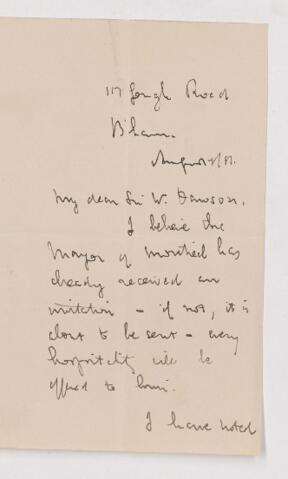 117 Gough Road
B'ham.
August /81.
My dear Sir W. Dawson,
I believe the
Mayor of Montreal has
already received an
invitation – if not, it is
about to be sent – every
hospitality will be
offered to him.
I have noted